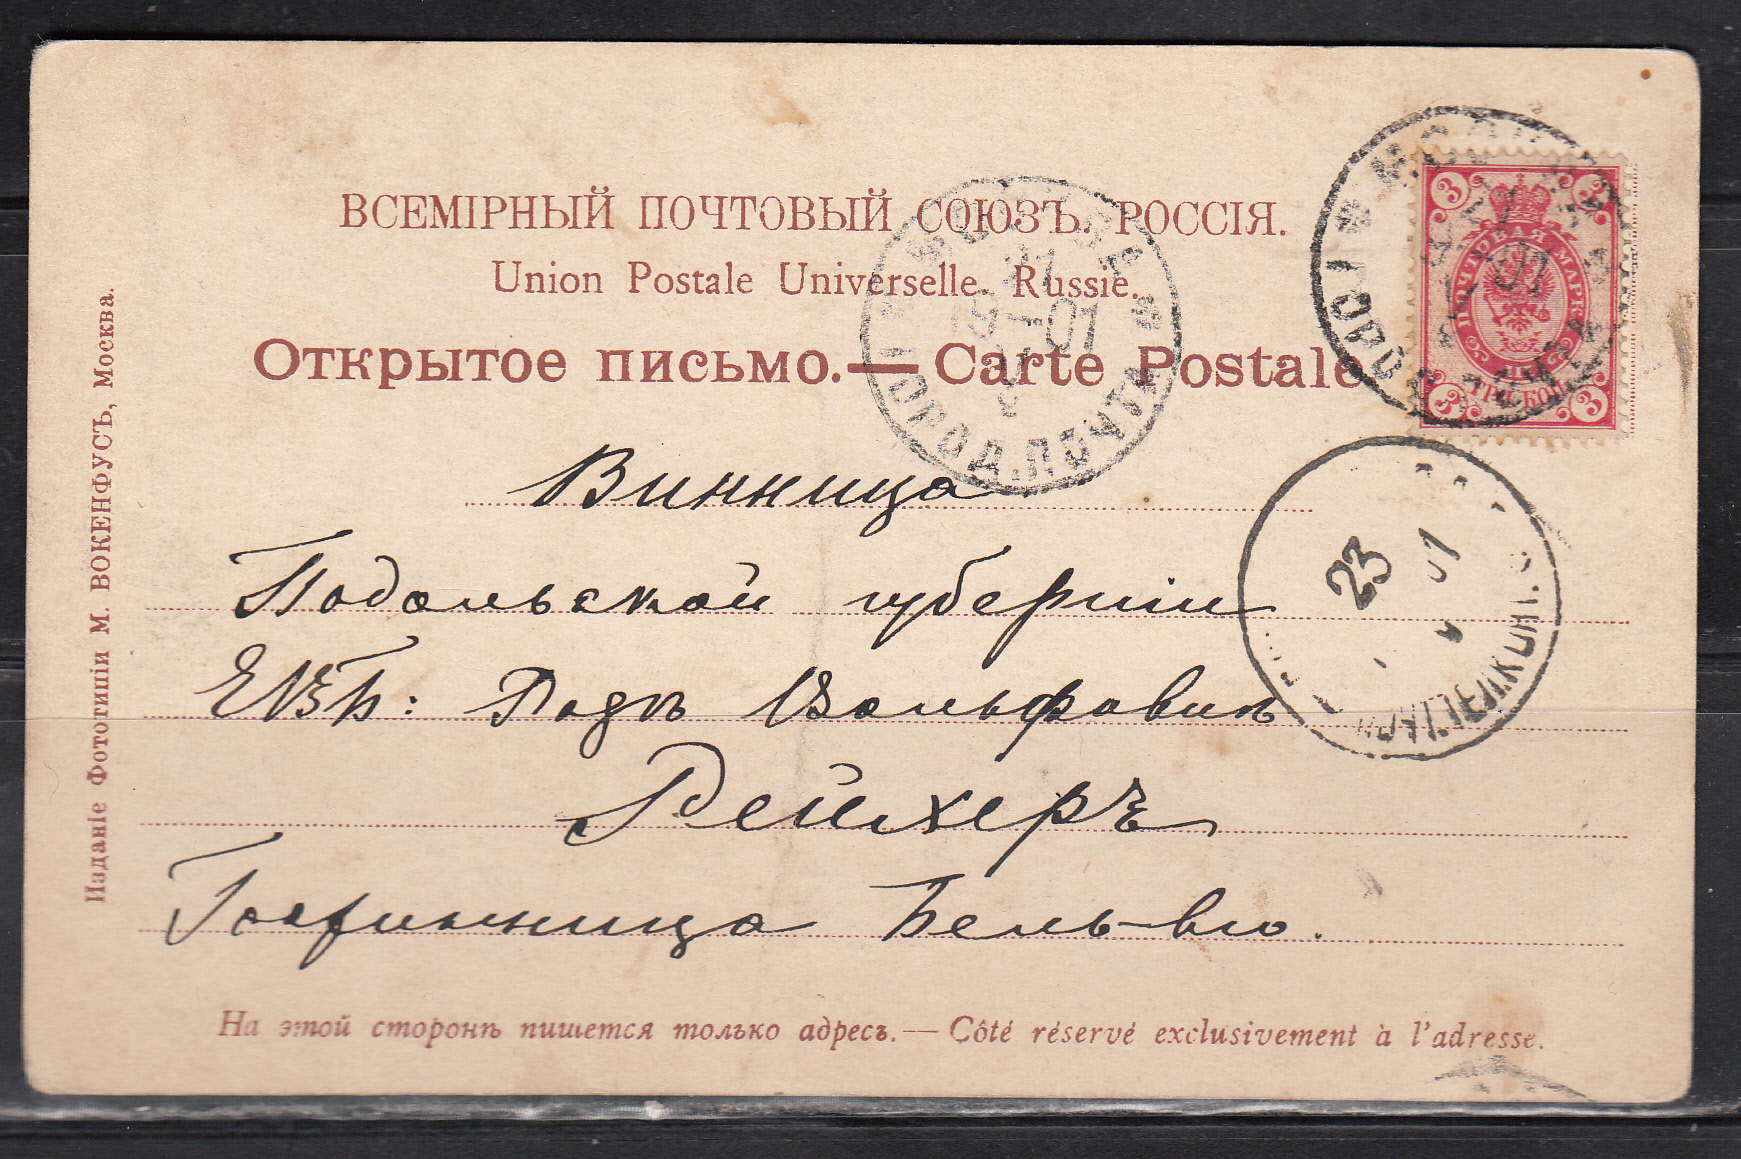 ВСЕМІРНЫЙ ПОЧТОВЫЙ СОЮЗЪ. РОССІЯ.
Union Postale Universelle. Russie.
Открытое письмо.—Carte Postale
Винница
Подольской губерніи
ЕВБ:
Рейхеръ
Гостинница Бель-вю.
На этой сторонѣ пишется только адресъ.—Côté réservé exclusivement à l'adresse.
Изданіе Фототипіи М. ВОКЕНФУСЪ, Москва.
МОСКВА
21
1901
ГОРОД. ПОЧТА
3 3
ПОЧТОВАЯ МАРКА
ТРИ КОП.
3 3
23